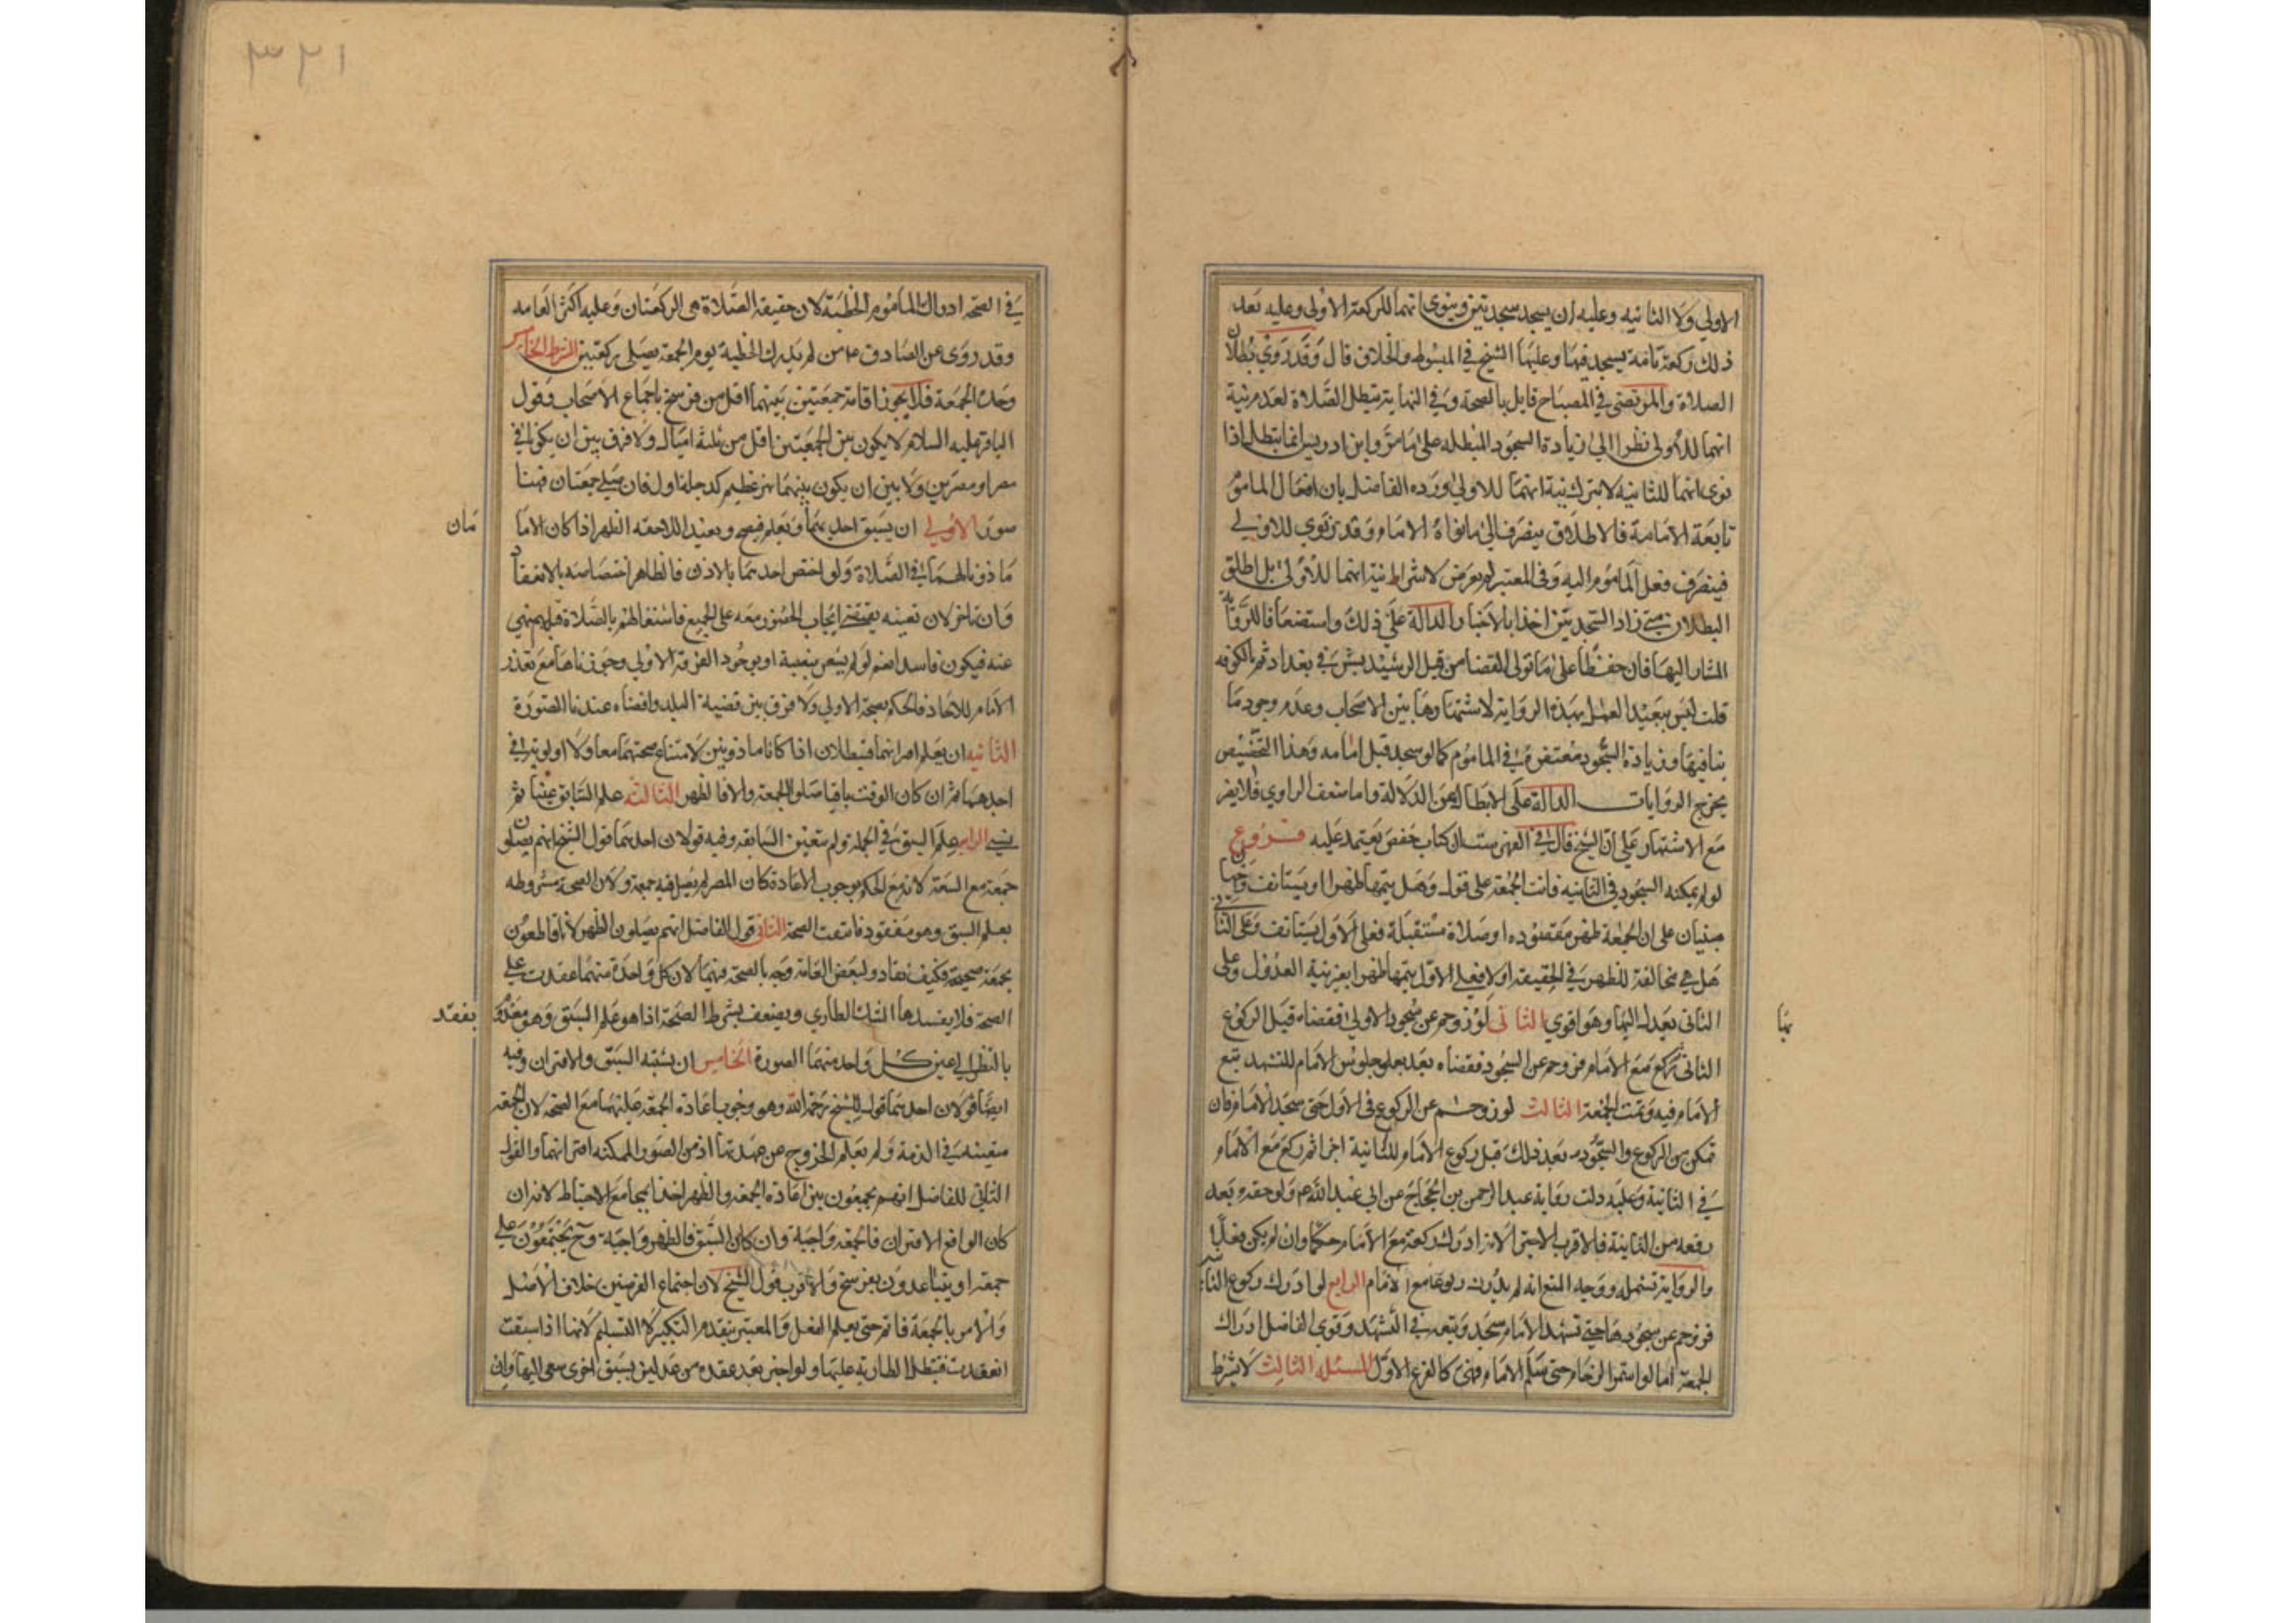 الاولي ولا الثانيه وعليه ان يسجد سجدتين وينوي انهما للركعة الاولي وعليه بعد
ذلك ركعة تامة يسجد فيها وعليها الشيخ في المبسوط والخلاف قال وقد روي بطلان
الصلاة والمرتضى في المصباح قايل بالصحة وفي النهاية تبطل الصلاة لعدم نية
انهما للاولى نظرا الي زيادة السجود المبطله على ما مر وابن ادريس انما يبطل اذا
نوى انهما للثانيه لا بترك نية انهما للاولى ورده الفاضل بان افعال المامو
تابعة لامامة فالاطلاق ينصرف الي ما نواه الامام وقد نوي للاولي
فينصرف فعل المأموم اليه وفي المعتبر لم يعرض لاشتراط نية انهما للاولى بل اطلق
البطلان متى زاد السجدتين اخذا بالاخبار الدالة على ذلك واستضعافا للرواية
المشار اليها فان حفصا على ما تولى القضا من قبل الرشيد بشرقي بغداد ثم بالكوفه
قلت ليس ببعيد العمل بهذه الرواية لاشتهارها بين الاصحاب وعدم وجود ما
ينافيها وزيادة السجود مغتفرة في الماموم كما لو سجد قبل امامه وهذا التخصيص
يخرج الروايات الدالة على الابطال عن الدلالة واما ضعف الراوي فلا يضر
مع الاشتهار على ان الشيخ قال في الفهرست ان كتاب حفص يعتمد عليه فروع
لو لم يمكنه السجود في الثانيه فاتت الجمعة على قول وهل يتمها ظهرا او يستانف وجهان
مبنيان على ان الجمعة ظهر مقصوده او صلاة مستقبلة فعلى الاول يستانف وعلى الثاني
هل هي مخالفة للظهر في الحقيقه او لا فعلى الاول يتمها ظهرا بغير نية العدول وعلى
الثاني يعدل اليها وهو اقوي الثاني لو زوحم عن سجود الاولي فقضاه قبل الركوع
نها
الثاني ركع مع الامام فزوحم عن السجود فقضاه بعد جلوس الامام للتشهد تبع
الامام فيه وتمت الجمعة الثالث لو زوحم عن الركوع في الاول حتى سجد الامام فان
تمكن من الركوع والسجود بعد ذلك قبل ركوع الامام للثانية اجزا ثم ركع مع الامام
في الثانية وعليه دلت رواية عبد الرحمن بن الحجاج عن ابي عبد الله ع ولو لحقه بعد
رفعه من الثانية فالاقرب الاجتزا لانه ادرك ركعة مع الامام حكما وان لم يكن فعلا
والرواية تشمله ووجه المنع انه لم يدرك ركوعا مع الامام الرابع لو ادرك ركوع الثانيه
فزوحم عن سجودها حتى تشهد الامام سجد وتبعه في التشهد وقوي الفاضل ادراك
الجمعة اما لو استمر الزحام حتى سلم الامام فهي كالفرع الاول المسئله الثالث لا يشترط
٣٢١
في الصحه ادراك المأموم الخطبة لان حقيقة الصلاة هي الركعتان وعليه اكثر العامه
وقد روى عن الصادق ع من لم يدرك الخطبة يوم الجمعة يصلي ركعتين الشرط الخامس
وحدة الجمعة فلا يجوز اقامة جمعتين بينهما اقل من فرسخ باجماع الاصحاب وقول
الباقر عليه السلام لا يكون بين الجمعتين اقل من ثلثة اميال ولا فرق بين ان يكونا في
مصر او مصرين ولا بين ان يكون بينهما نهر عظيم كدجلة اولا فان صلي جمعتان فهنا
صور الاولي ان يسبق احديهما ويعلم فيصح ويعيد اللاحقه الظهر اذا كان الاما
مان
ماذونا لهما في الصلاة ولو اختص احدهما بالاذن فالظاهر اختصاصه بالانعقاد
وان تاخر لان تعينه يقتضي ايجاب الحضور معه على الجميع فاشتغالهم بالصلاة قبله منهي
عنه فيكون فاسدا نعم لو لم يشعر بنصبة او بوجود الفرقة الاولي وجوزناها مع تعذر
الامام للاتحاد فالحكم بصحة الاولي ولا فرق بين قضية البلد واقصاه عندنا الصورة
الثانيه ان يعلم اقترانهما فتبطلان اذا كانا ماذونين لامتناع صحتهما معا ولا اولوية في
احدهما ثم ان كان الوقت باقيا صلوا الجمعة والا فالظهر الثالثه علم السابق عينا ثم
نسي الرابع علم السبق في الجملة ولم يتعين السابقه وفيه قولان احدهما قول الشيخ انهم يصلون
جمعة مع السعة لانه مع الحكم بوجوب الاعادة كان المصر لم يصل فيه جمعة ولان الصحة مشروطه
بعلم السبق وهو مفقود فانتفت الصحة الثاني قول الفاضل انهم يصلون الظهر لانا قاطعون
بجمعة صحيحة فكيف تعاد ولبعض العامة وجه بالصحة فيهما لان كل واحدة منهما عقدت على
الصحة فلا يفسدها الشك الطاري ويضعف بشرط الصحة اذا هو علم السبق وهو مفقود
بفقد
بالنظر الي عين كل واحد منهما الصورة الخامس ان يشتبه السبق والاقتران وفيه
ايضا قولان احدهما قول الشيخ رحمة الله وهو وجوب اعادة الجمعة عليهما مع السعة لان الجمعة
متيقنه في الذمة ولم يعلم الخروج من عهدتها اذ من الصور الممكنه اقترانهما والقول
الثاني للفاضل انهم يجمعون بين اعادة الجمعة والظهر اخذا بمجامع الاحتياط لانه ان
كان الواقع الاقتران فالجمعه واجبة وان كان السبق فالظهر واجبة وح يجتمعون على
جمعة او يتباعدون بفرسخ والاقرب قول الشيخ لان اجتماع الفرضين خلاف الاصل
والامر بالجمعة قائم حتى يعلم الفعل والمعتبر بتقدم التكبير لا التسليم لانها اذا سبقت
انعقدت فتبطل الطارية عليها ولو اخبر بعد عقده من عدلين بسبق اخرى سعى اليها وان